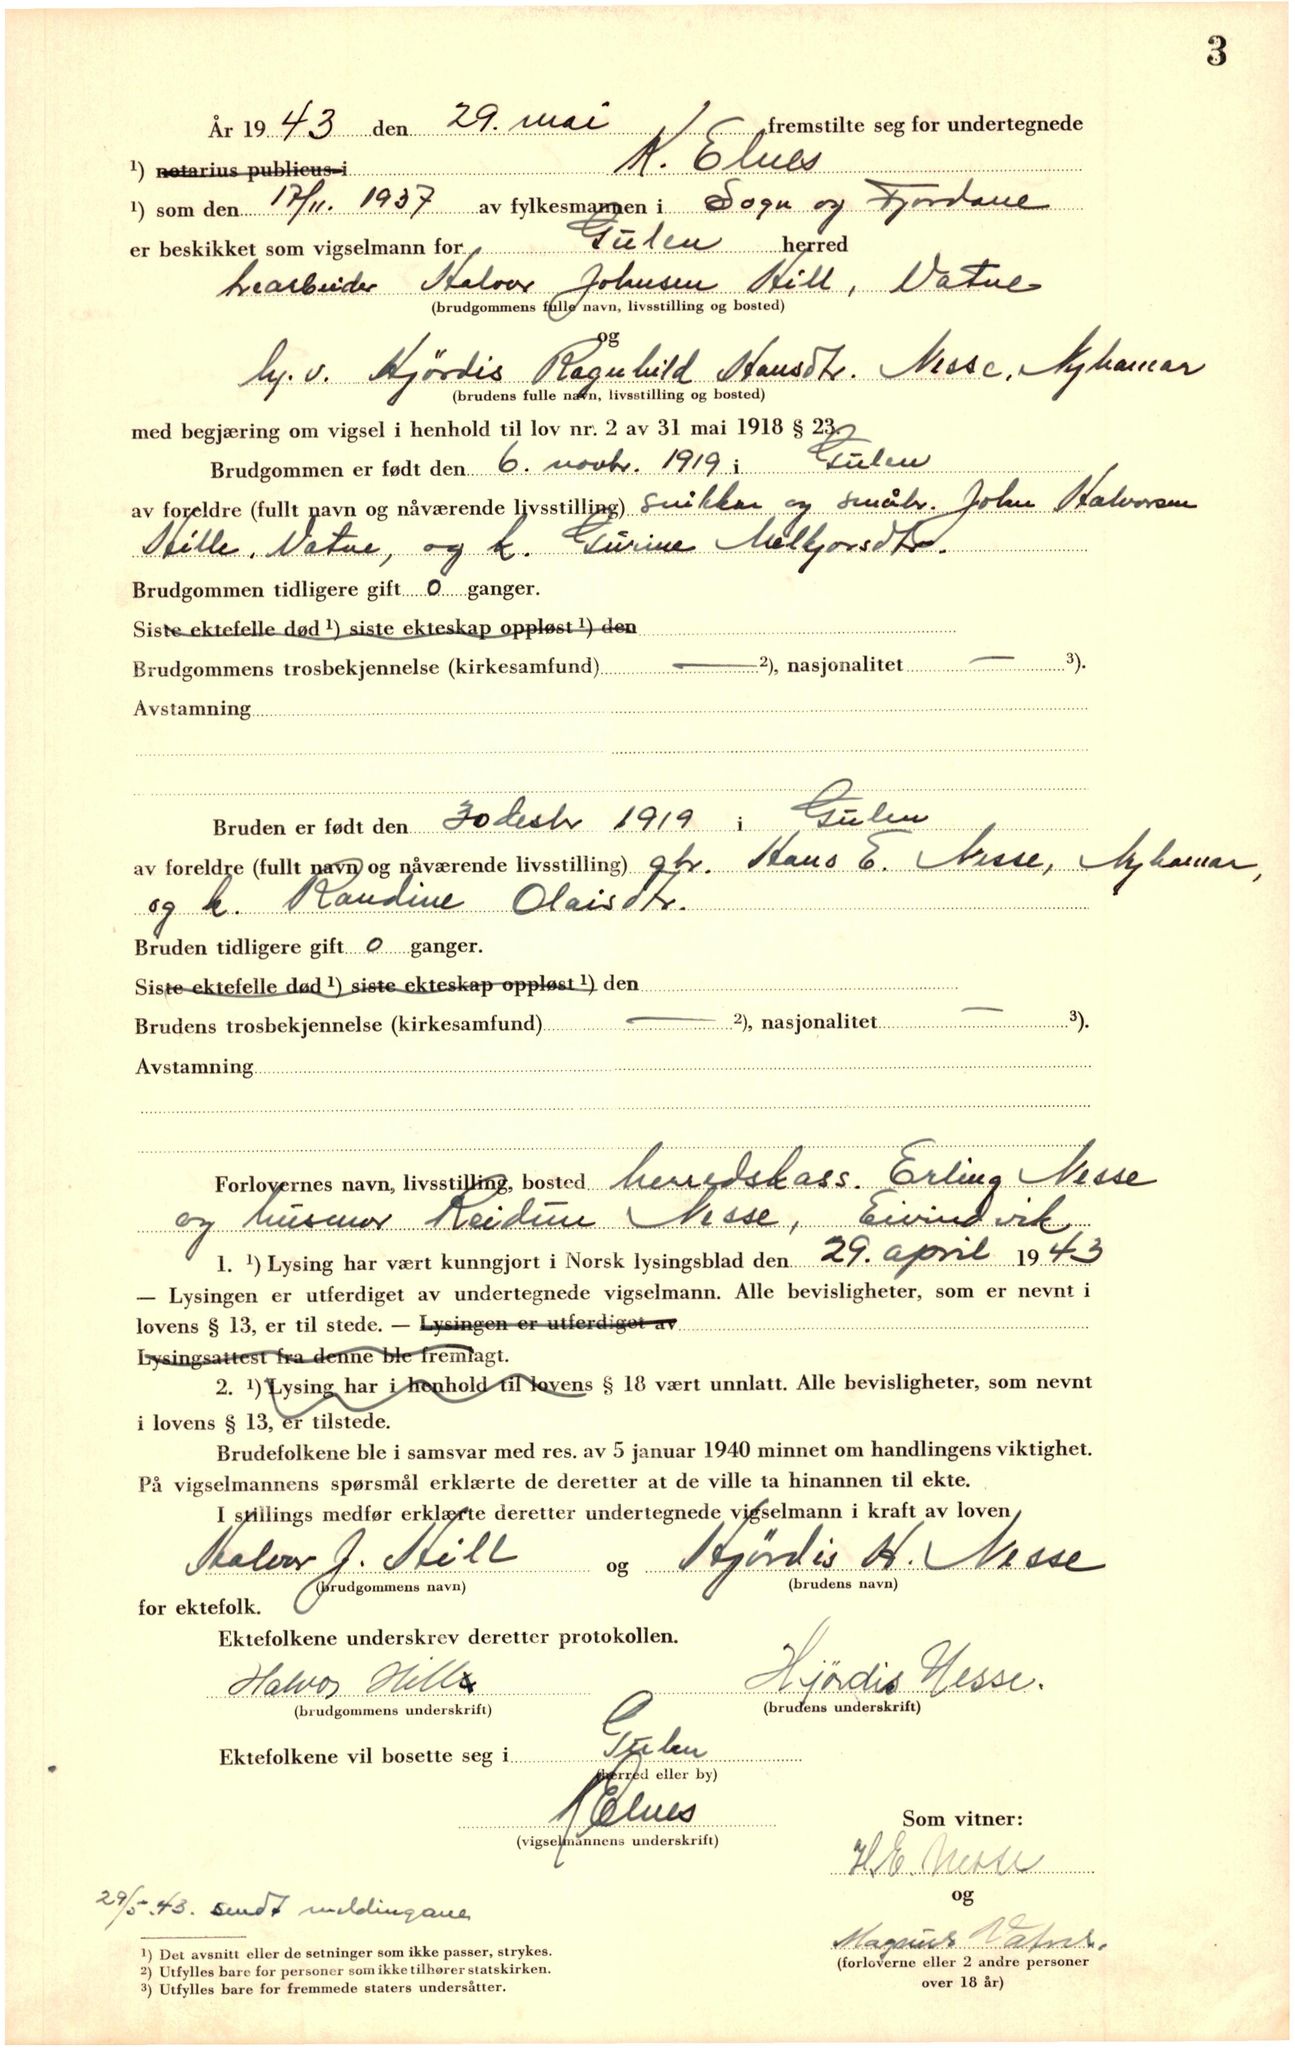 3
År 1943 den 29. mai fremstilte seg for undertegnede
¹) notarius publicus i K. Elnes
¹) som den 17/11. 1937 av fylkesmannen i Sogn og Fjordane
er beskikket som vigselmann for Gulen herred
Halvor Johnsen Hill, Vatne
(brudgommens fulle navn, livsstilling og bosted)
og
hj. v. Hjördis Ragnhild Hansdtr. Nesse, Nyhamar
(brudens fulle navn, livsstilling og bosted)
med begjæring om vigsel i henhold til lov nr. 2 av 31 mai 1918 § 23.
Brudgommen er født den 6. novbr. 1919 i Gulen
av foreldre (fullt navn og nåværende livsstilling) snikkar og småbr. John Halvorsen
Hille, Vatne, og k. Gurine Melkjorsdtr.
Brudgommen tidligere gift 0 ganger.
Siste ektefelle død ¹) siste ekteskap oppløst ¹) den
Brudgommens trosbekjennelse (kirkesamfund) — ²), nasjonalitet — ³).
Avstamning
Bruden er født den 30 desbr 1919 i Gulen
av foreldre (fullt navn og nåværende livsstilling) gbr. Hans E. Nesse, Nyhamar,
og k. Randine Olaisdtr.
Bruden tidligere gift 0 ganger.
Siste ektefelle død ¹) siste ekteskap oppløst ¹) den
Brudens trosbekjennelse (kirkesamfund) — ²), nasjonalitet — ³).
Avstamning
Forlovernes navn, livsstilling, bosted herredskass. Erling Nesse
og husmor Reidun Nesse, Eivindvik
1. ¹) Lysing har vært kunngjort i Norsk lysingsblad den 29. april 1943
— Lysingen er utferdiget av undertegnede vigselmann. Alle bevisligheter, som er nevnt i
lovens § 13, er til stede. — Lysingen er utferdiget av
Lysingsattest fra denne ble fremlagt.
2. ¹) Lysing har i henhold til lovens § 18 vært unnlatt. Alle bevisligheter, som nevnt
i lovens § 13, er tilstede.
Brudefolkene ble i samsvar med res. av 5 januar 1940 minnet om handlingens viktighet.
På vigselmannens spørsmål erklærte de deretter at de ville ta hinannen til ekte.
I stillings medfør erklærte deretter undertegnede vigselmann i kraft av loven
Halvor J. Hill og Hjördis H. Nesse
(brudgommens navn) (brudens navn)
for ektefolk.
Ektefolkene underskrev deretter protokollen.
Halvor Hill Hjördis Nesse.
(brudgommens underskrift) (brudens underskrift)
Ektefolkene vil bosette seg i Gulen
(herred eller by)
K Elnes Som vitner:
(vigselmannens underskrift)
H.E. Nesse
og
29/5.43. sendt meldingane
Magnus Vatne.
(forloverne eller 2 andre personer
over 18 år)
¹) Det avsnitt eller de setninger som ikke passer, strykes.
²) Utfylles bare for personer som ikke tilhører statskirken.
³) Utfylles bare for fremmede staters undersåtter.